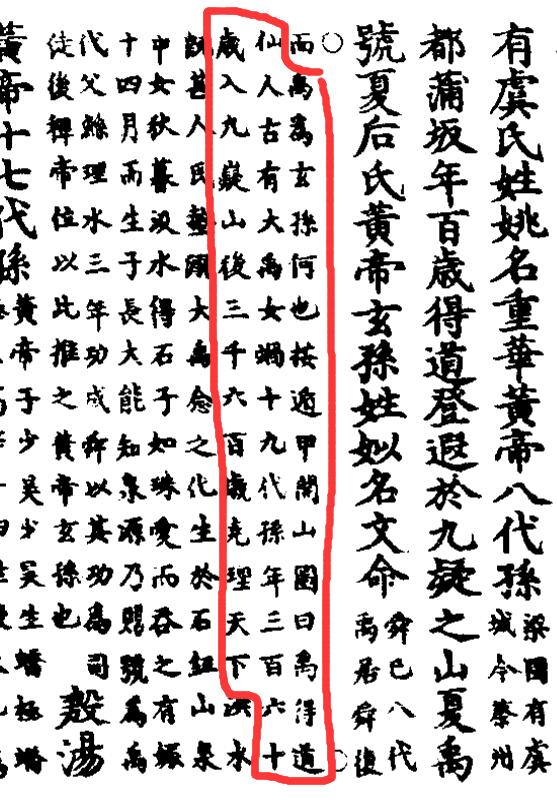 有虞氏姓姚名重華黃帝八代孫
梁國有虞
城令蔡州
都蒲坂年百歲得道登遐於九疑之山夏禹
號夏后氏黃帝玄孫姓姒名文命
舜巳八代
禹居舜後
○
而禹為玄孫何也按遁甲開山圖曰禹得道
仙人古有大禹女媧十九代孫年三百六十
歲入九嶷山後三千六百歲堯理天下洪水
既甚人民墊溺大禹念之化生於石紐山泉
中女狄暮汲水得石子如珠愛而吞之有娠
十四月而生子長大能知泉源乃賜號為禹
代父鯀理水三年功成舜以其功為司
徒後禪帝位以此推之黃帝玄孫也
殷湯
黃帝十七代孫
黃帝子少昊少昊生蟜極蟜